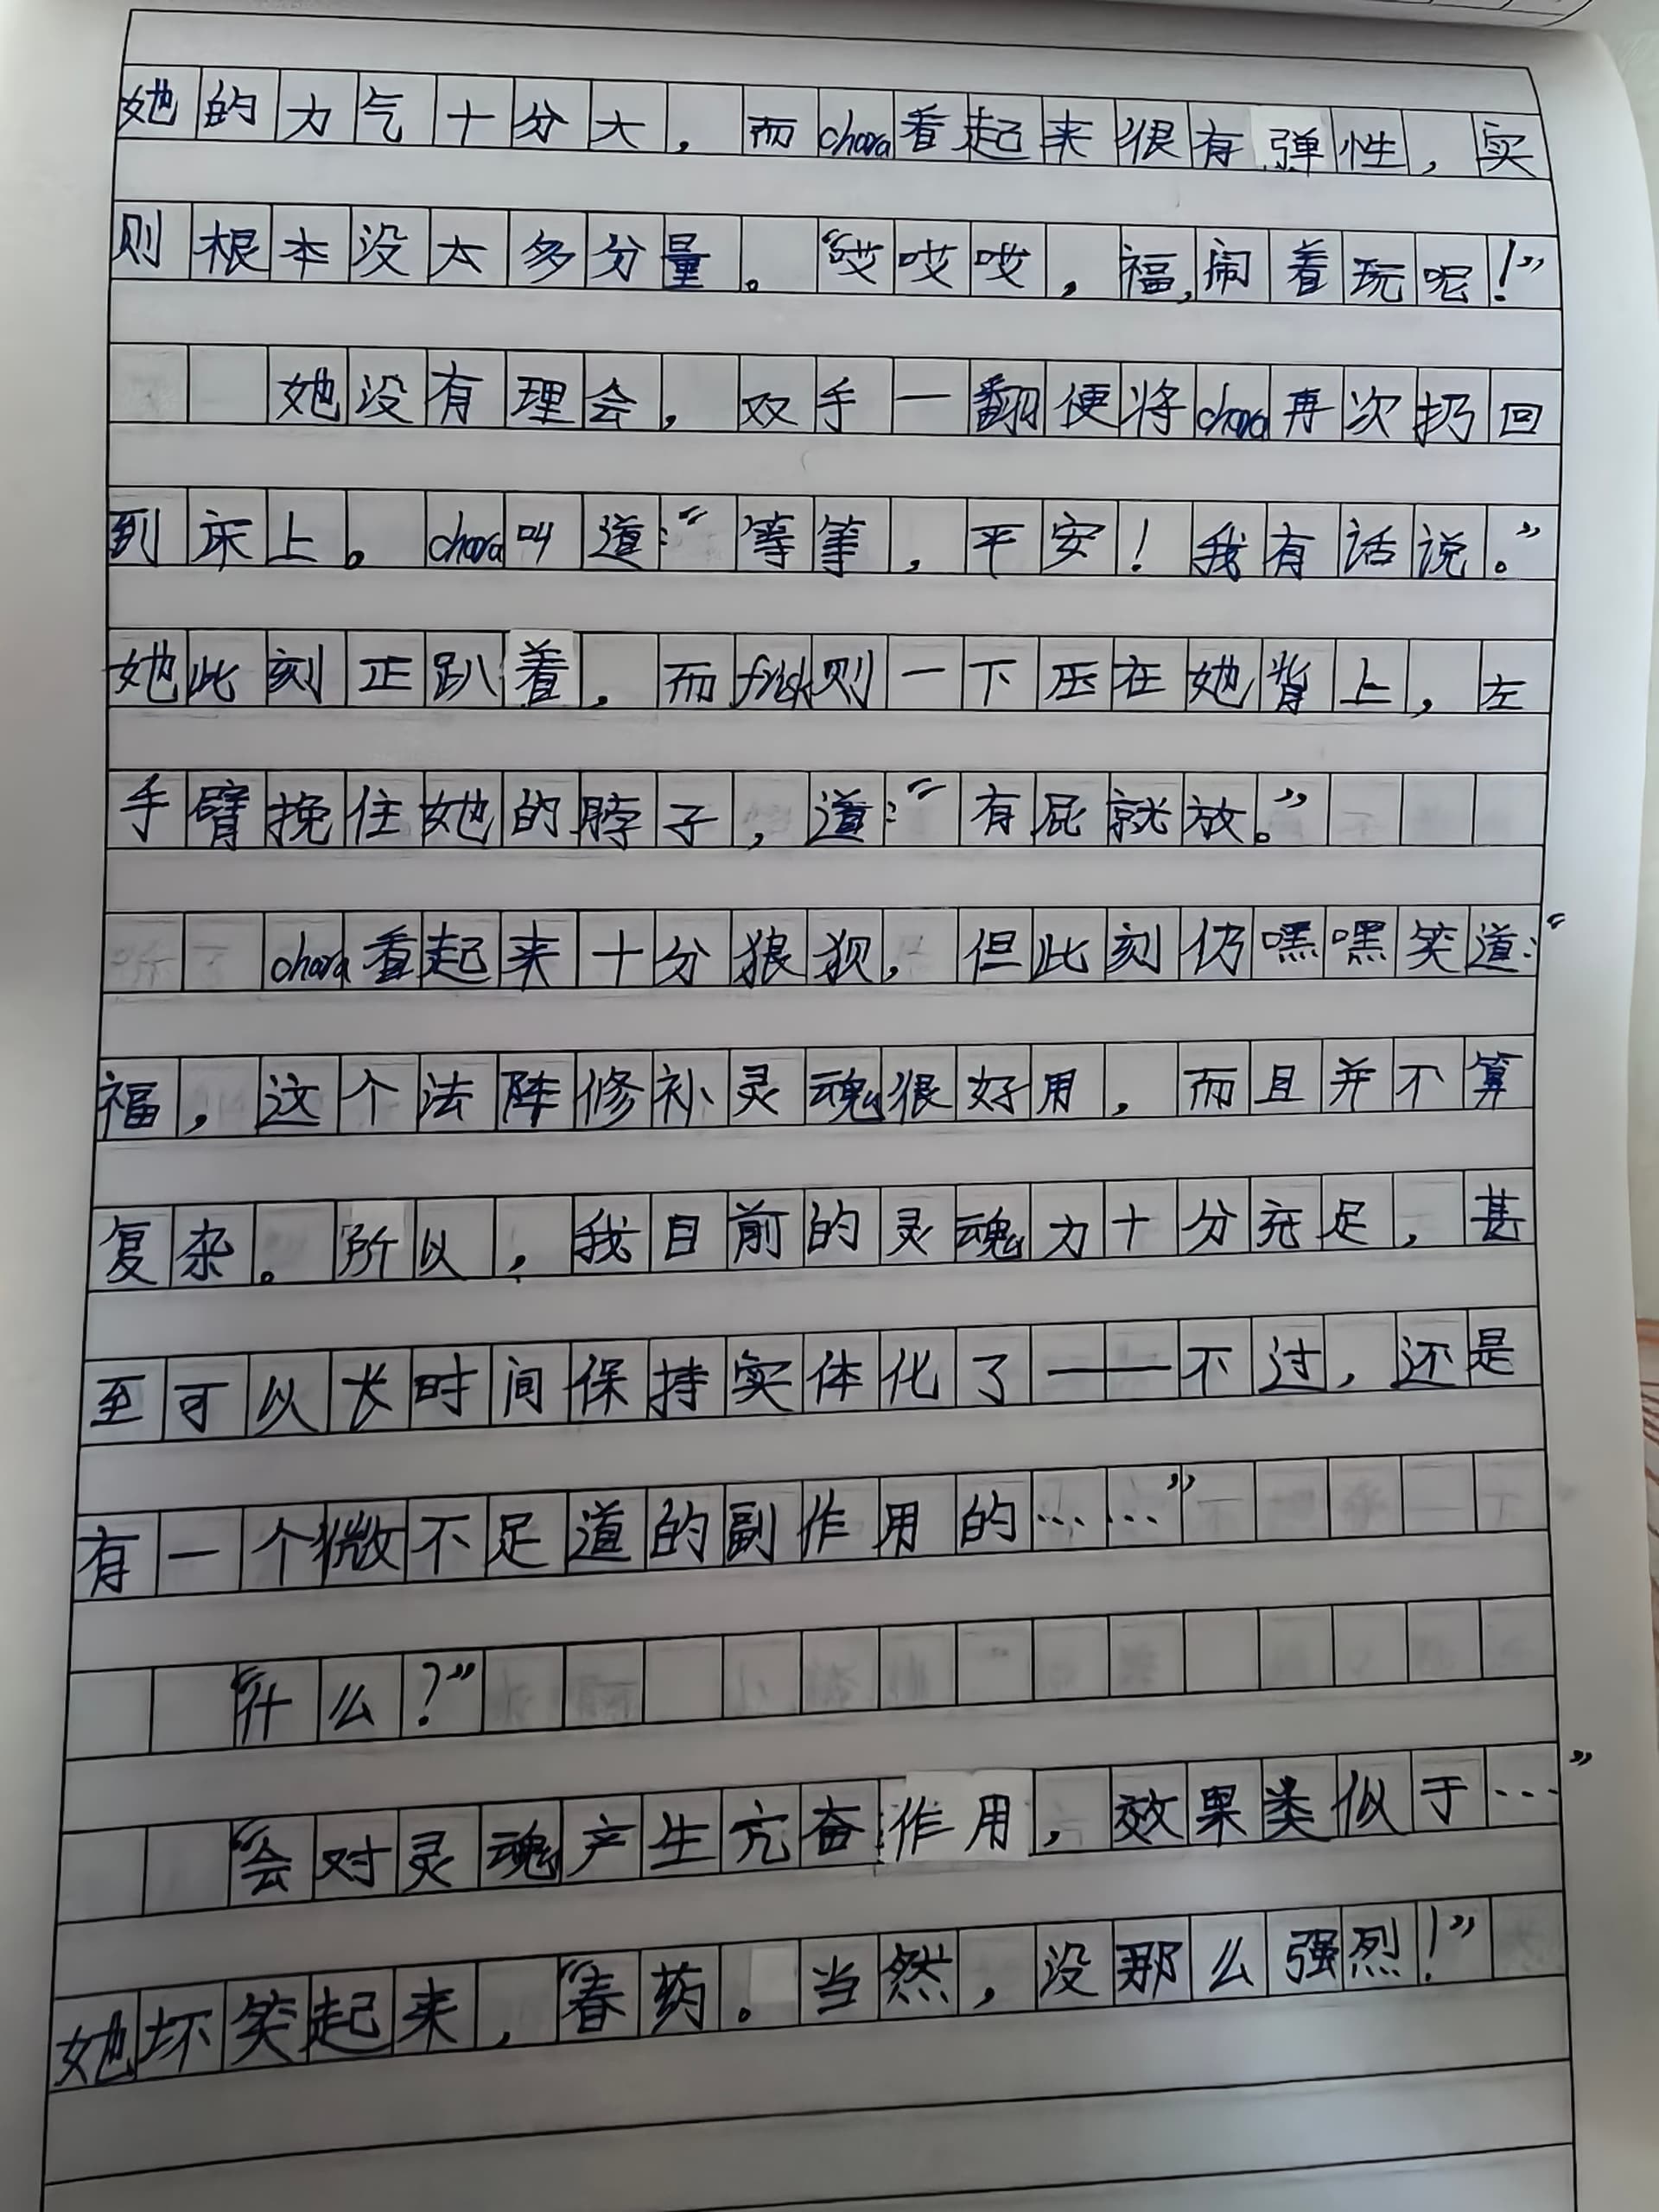 她的力气十分大，而chara看起来很有弹性，实
则根本没太多分量。“哎哎哎，福，闹着玩呢！”
她没有理会，双手一翻便将chara再次扔回
到床上。chara叫道：“等等，平安！我有话说。”
她此刻正趴着，而frisk则一下压在她背上，左
手臂挽住她的脖子，道：“有屁就放。”
chara看起来十分狼狈，但此刻仍嘿嘿笑道：“
福，这个法阵修补灵魂很好用，而且并不算
复杂。所以，我目前的灵魂力十分充足，甚
至可以长时间保持实体化了——不过，还是
有一个微不足道的副作用的……”
“什么？”
“会对灵魂产生亢奋作用，效果类似于…”
她坏笑起来，“春药。当然，没那么强烈！”